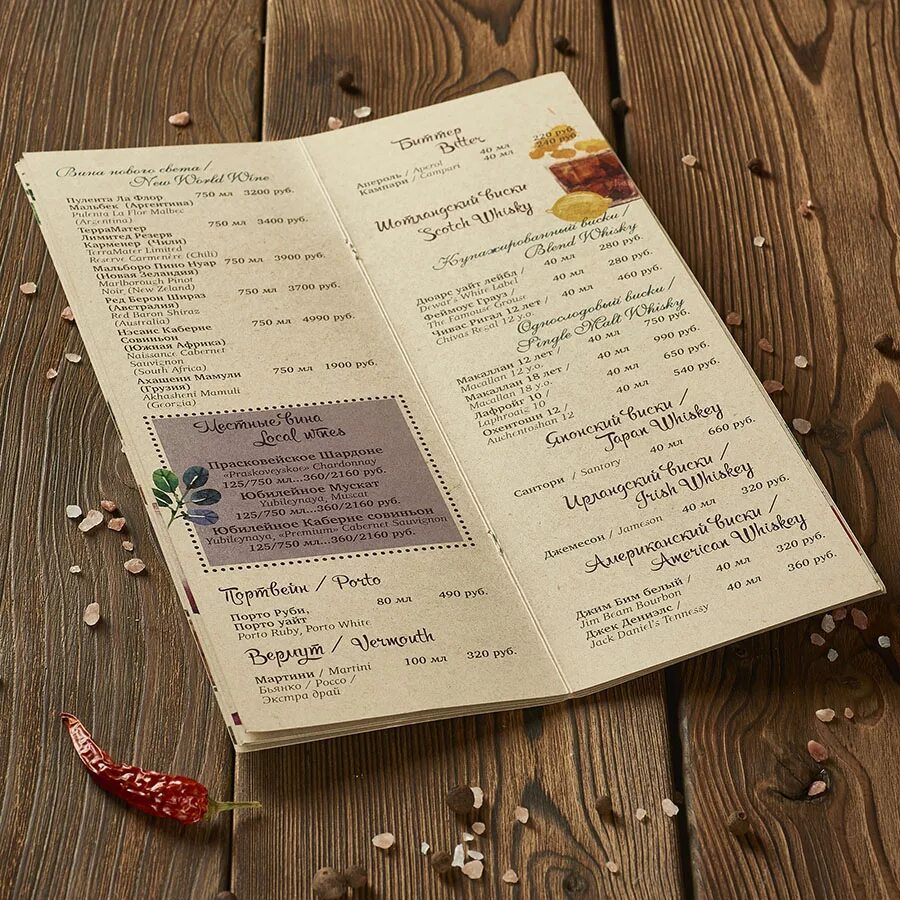 Вина нового света /
New World Wine
Пулента Ла Флор 750 мл 3200 руб.
Мальбек (Аргентина)
Pulenta La Flor Malbec
(Argentina)
ТерраМатер 750 мл 3400 руб.
Лимитед Резерв
Карменер (Чили)
TerraMater Limited
Reserve Carmenere (Chili)
Мальборо Пино Нуар 750 мл 3900 руб.
(Новая Зеландия)
Marlborough Pinot
Noir (New Zeland)
Ред Берон Шираз 750 мл 3700 руб.
(Австралия)
Red Baron Shiraz
(Australia)
Нэсанс Каберне 750 мл 4990 руб.
Совиньон
(Южная Африка)
Naissance Cabernet
Sauvignon
(South Africa)
Ахашени Мамули 750 мл 1900 руб.
(Грузия)
Akhasheni Mamuli
(Georgia)
Местные вина
Local wines
Прасковейское Шардоне
«Praskoveyskoe» Chardonnay
125/750 мл...360/2160 руб.
Юбилейное Мускат
Yubileynaya, Muscat
125/750 мл...360/2160 руб.
Юбилейное Каберне совиньон
Yubileynaya, «Premium» Cabernet Sauvignon
125/750 мл...360/2160 руб.
Портвейн / Porto
Порто Руби, 80 мл 490 руб.
Порто уайт
Porto Ruby, Porto White
Вермут / Vermouth
Мартини / Martini 100 мл 320 руб.
Бьянко / Россо /
Экстра драй
Биттер
Bitter
Апероль / Aperol 40 мл 220 руб.
Кампари / Campari 40 мл 240 руб.
Шотландский виски
Scotch Whisky
Купажированный виски /
Blend Whisky
Дюарс уайт лейбл / 40 мл 280 руб.
Dewar's White Label
Феймоус Грауз / 40 мл 280 руб.
The Famouse Grouse
Чивас Ригал 12 лет / 40 мл 460 руб.
Chivas Regal 12 y.o.
Односолодовый виски /
Single Malt Whisky
Макаллан 12 лет / 40 мл 750 руб.
Macallan 12 y.o.
Макаллан 18 лет / 40 мл 990 руб.
Macallan 18 y.o.
Лафройг 10 / 40 мл 650 руб.
Laphrodig 10
Охентошн 12 / 40 мл 540 руб.
Auchentoshan 12
Японский виски /
Japan Whiskey
Сантори / Santory 40 мл 660 руб.
Ирландский виски /
Irish Whiskey
Джемесон / Jameson 40 мл 320 руб.
Американский виски /
American Whiskey
Джим Бим белый / 40 мл 320 руб.
Jim Beam Bourbon
Джек Дениэлс / 40 мл 360 руб.
Jack Daniel's Tennessy